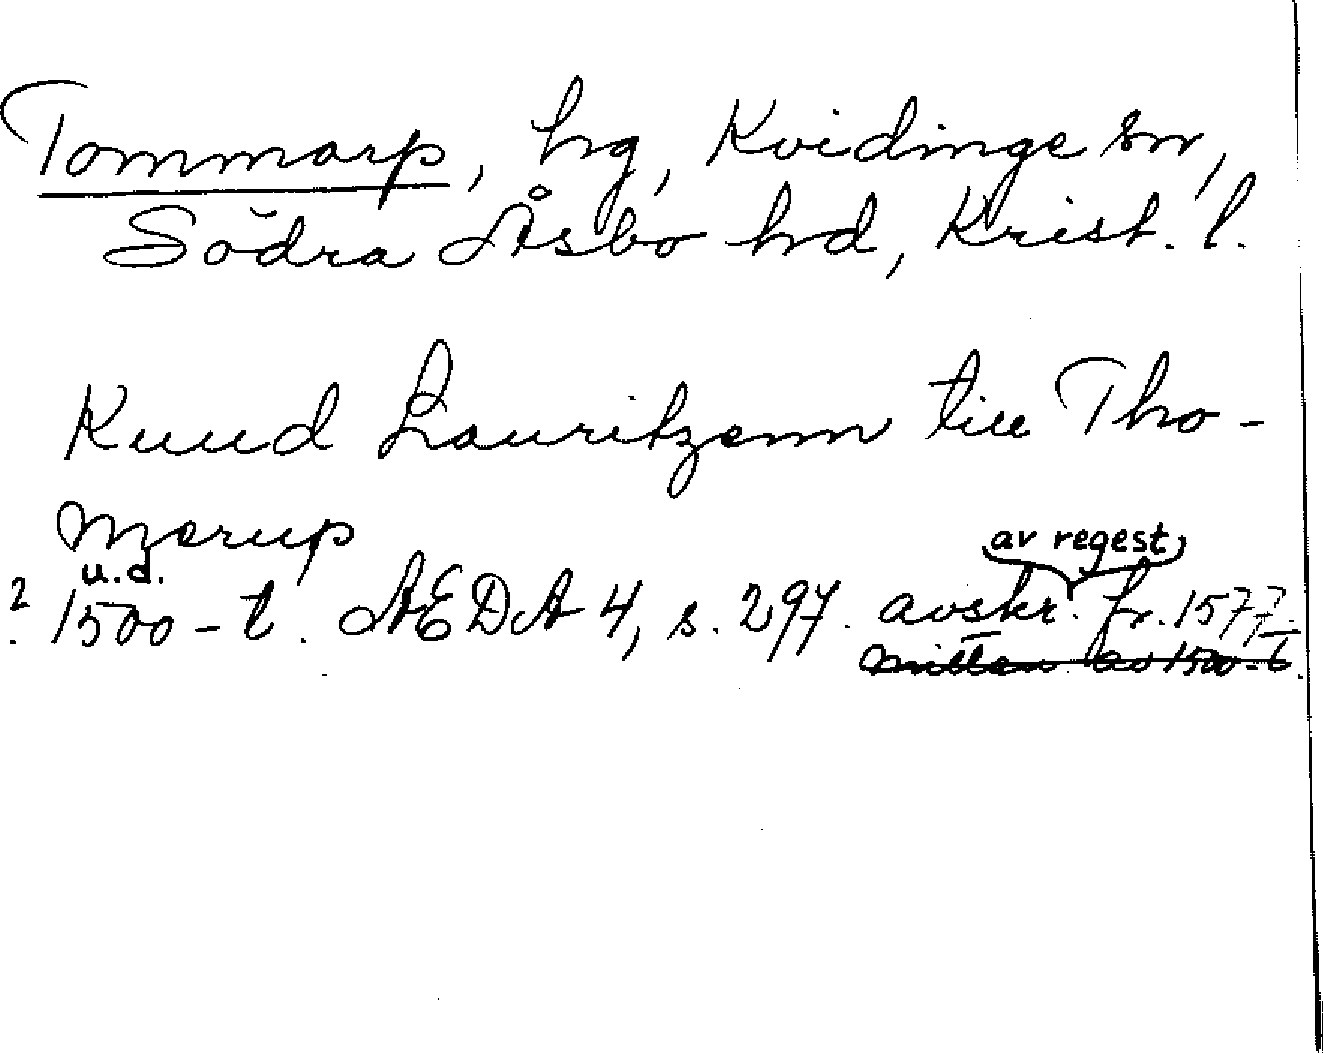 Tommarp, hg, Kvidinge sn,
Södra Åsbo hd, Krist. l.
Knud Lauritzenn till Tho-
merup
av regest
u.d.
? 1500-t. AEDA 4, s. 297. avskr. fr. 1577.
mitten av 1500-t.